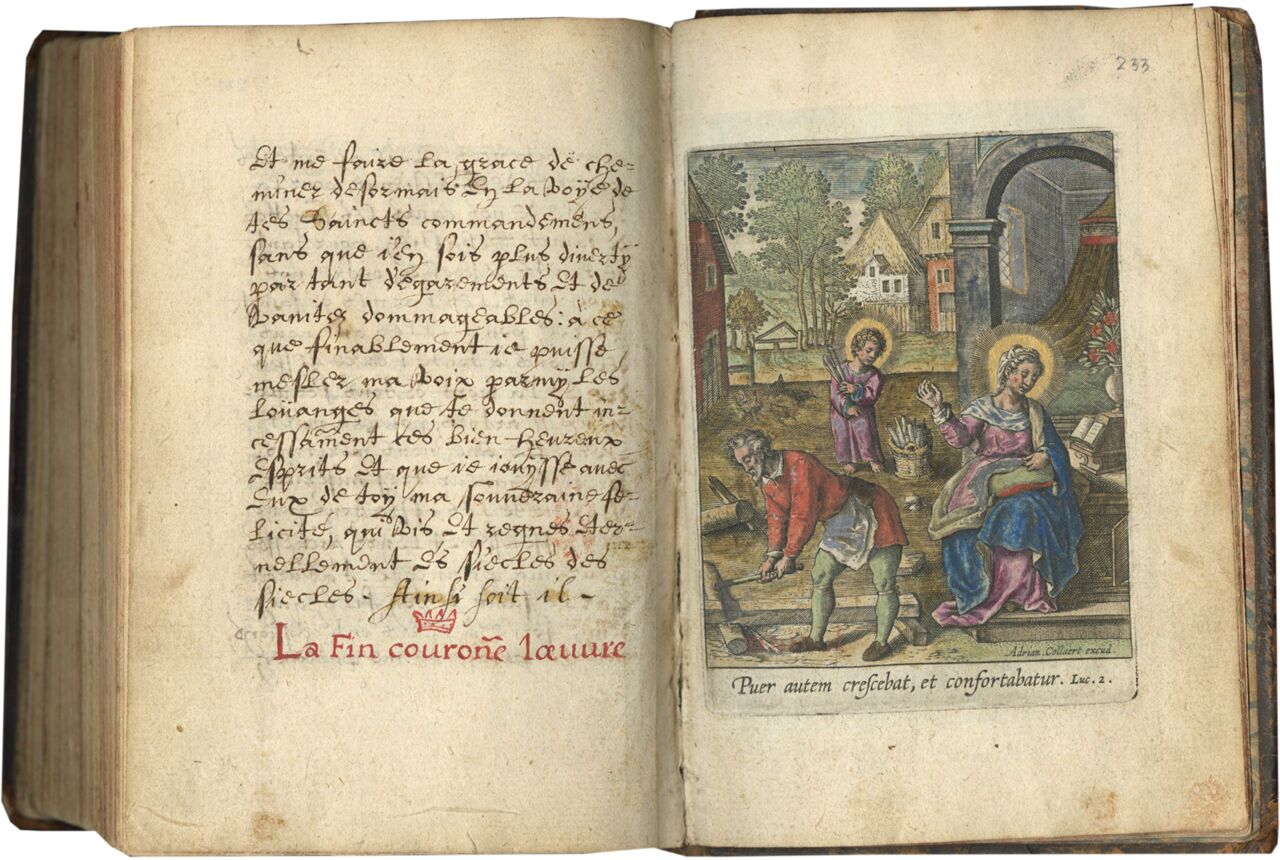 Et me faire la grace de che-
miner desormais En la voye de
tes Saincts commandemens,
sans que i'en sois plus diverty
par tant d'egarements Et de
vanitez dommageables: à ce
que finablement ie puisse
mesler ma voix parmy les
loüanges que te donnent in-
cessãment ces bien-heureux
Esprits Et que ie iouysse avec
Eux de toy ma souveraine fe-
licité, qui vis Et regnes Eter-
nellement Es siecles des
siecles. Ainsi soit il.
La Fin couroñe lœuure
233
Adrian. Collaert excud.
Puer autem crescebat, et confortabatur. Luc. 2.